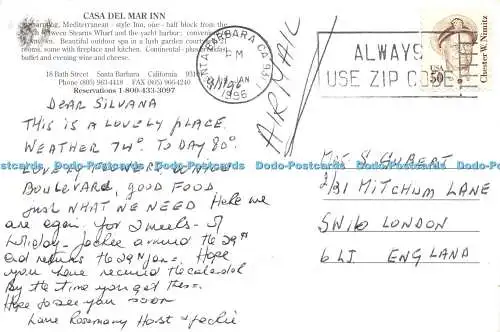 CASA DEL MAR INN
Charming, Mediterranean - style Inn, one - half block from the
Stearns Wharf and the yacht harbor;
Beautiful outdoor spa in a lush garden
rooms, some with fireplace and kitchen. Continental
buffet and evening wine and cheese.
18 Bath Street Santa Barbara California
Phone (805) 963-4418 FAX (805) 966-4240
Reservations 1-800-433-3097
SANTA BARBARA CA
PM
JAN
1996
AIRMAIL
ALWAYS
USE ZIP CODE
USA
50
Chester W. Nimitz
DEAR SILVANA
THIS IS A LOVELY PLACE.
WEATHER 74° TODAY 80°
LOVELY FLOWERS WHICH
BOULEVARD, GOOD FOOD,
JUST WHAT WE NEED Here we
are again for 2 weeks
holiday - Jackie around the 29th
and returns the 29th Jan. Hope
you have received the calendar
By the time you get this
Hope to see you soon
Love Rosemary Horst + Jackie
S HUBERT
2/31 MITCHUM LANE
SW16 LONDON
6LJ ENGLAND
Postcards